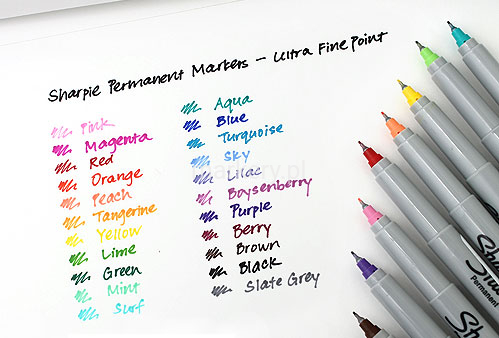 Sharpie Permanent Markers - Ultra Fine Point
Pink
Magenta
Red
Orange
Peach
Tangerine
Yellow
Lime
Green
Mint
Surf
Aqua
Blue
Turquoise
Sky
Lilac
Boysenberry
Purple
Berry
Brown
Black
Slate Grey
Permanent